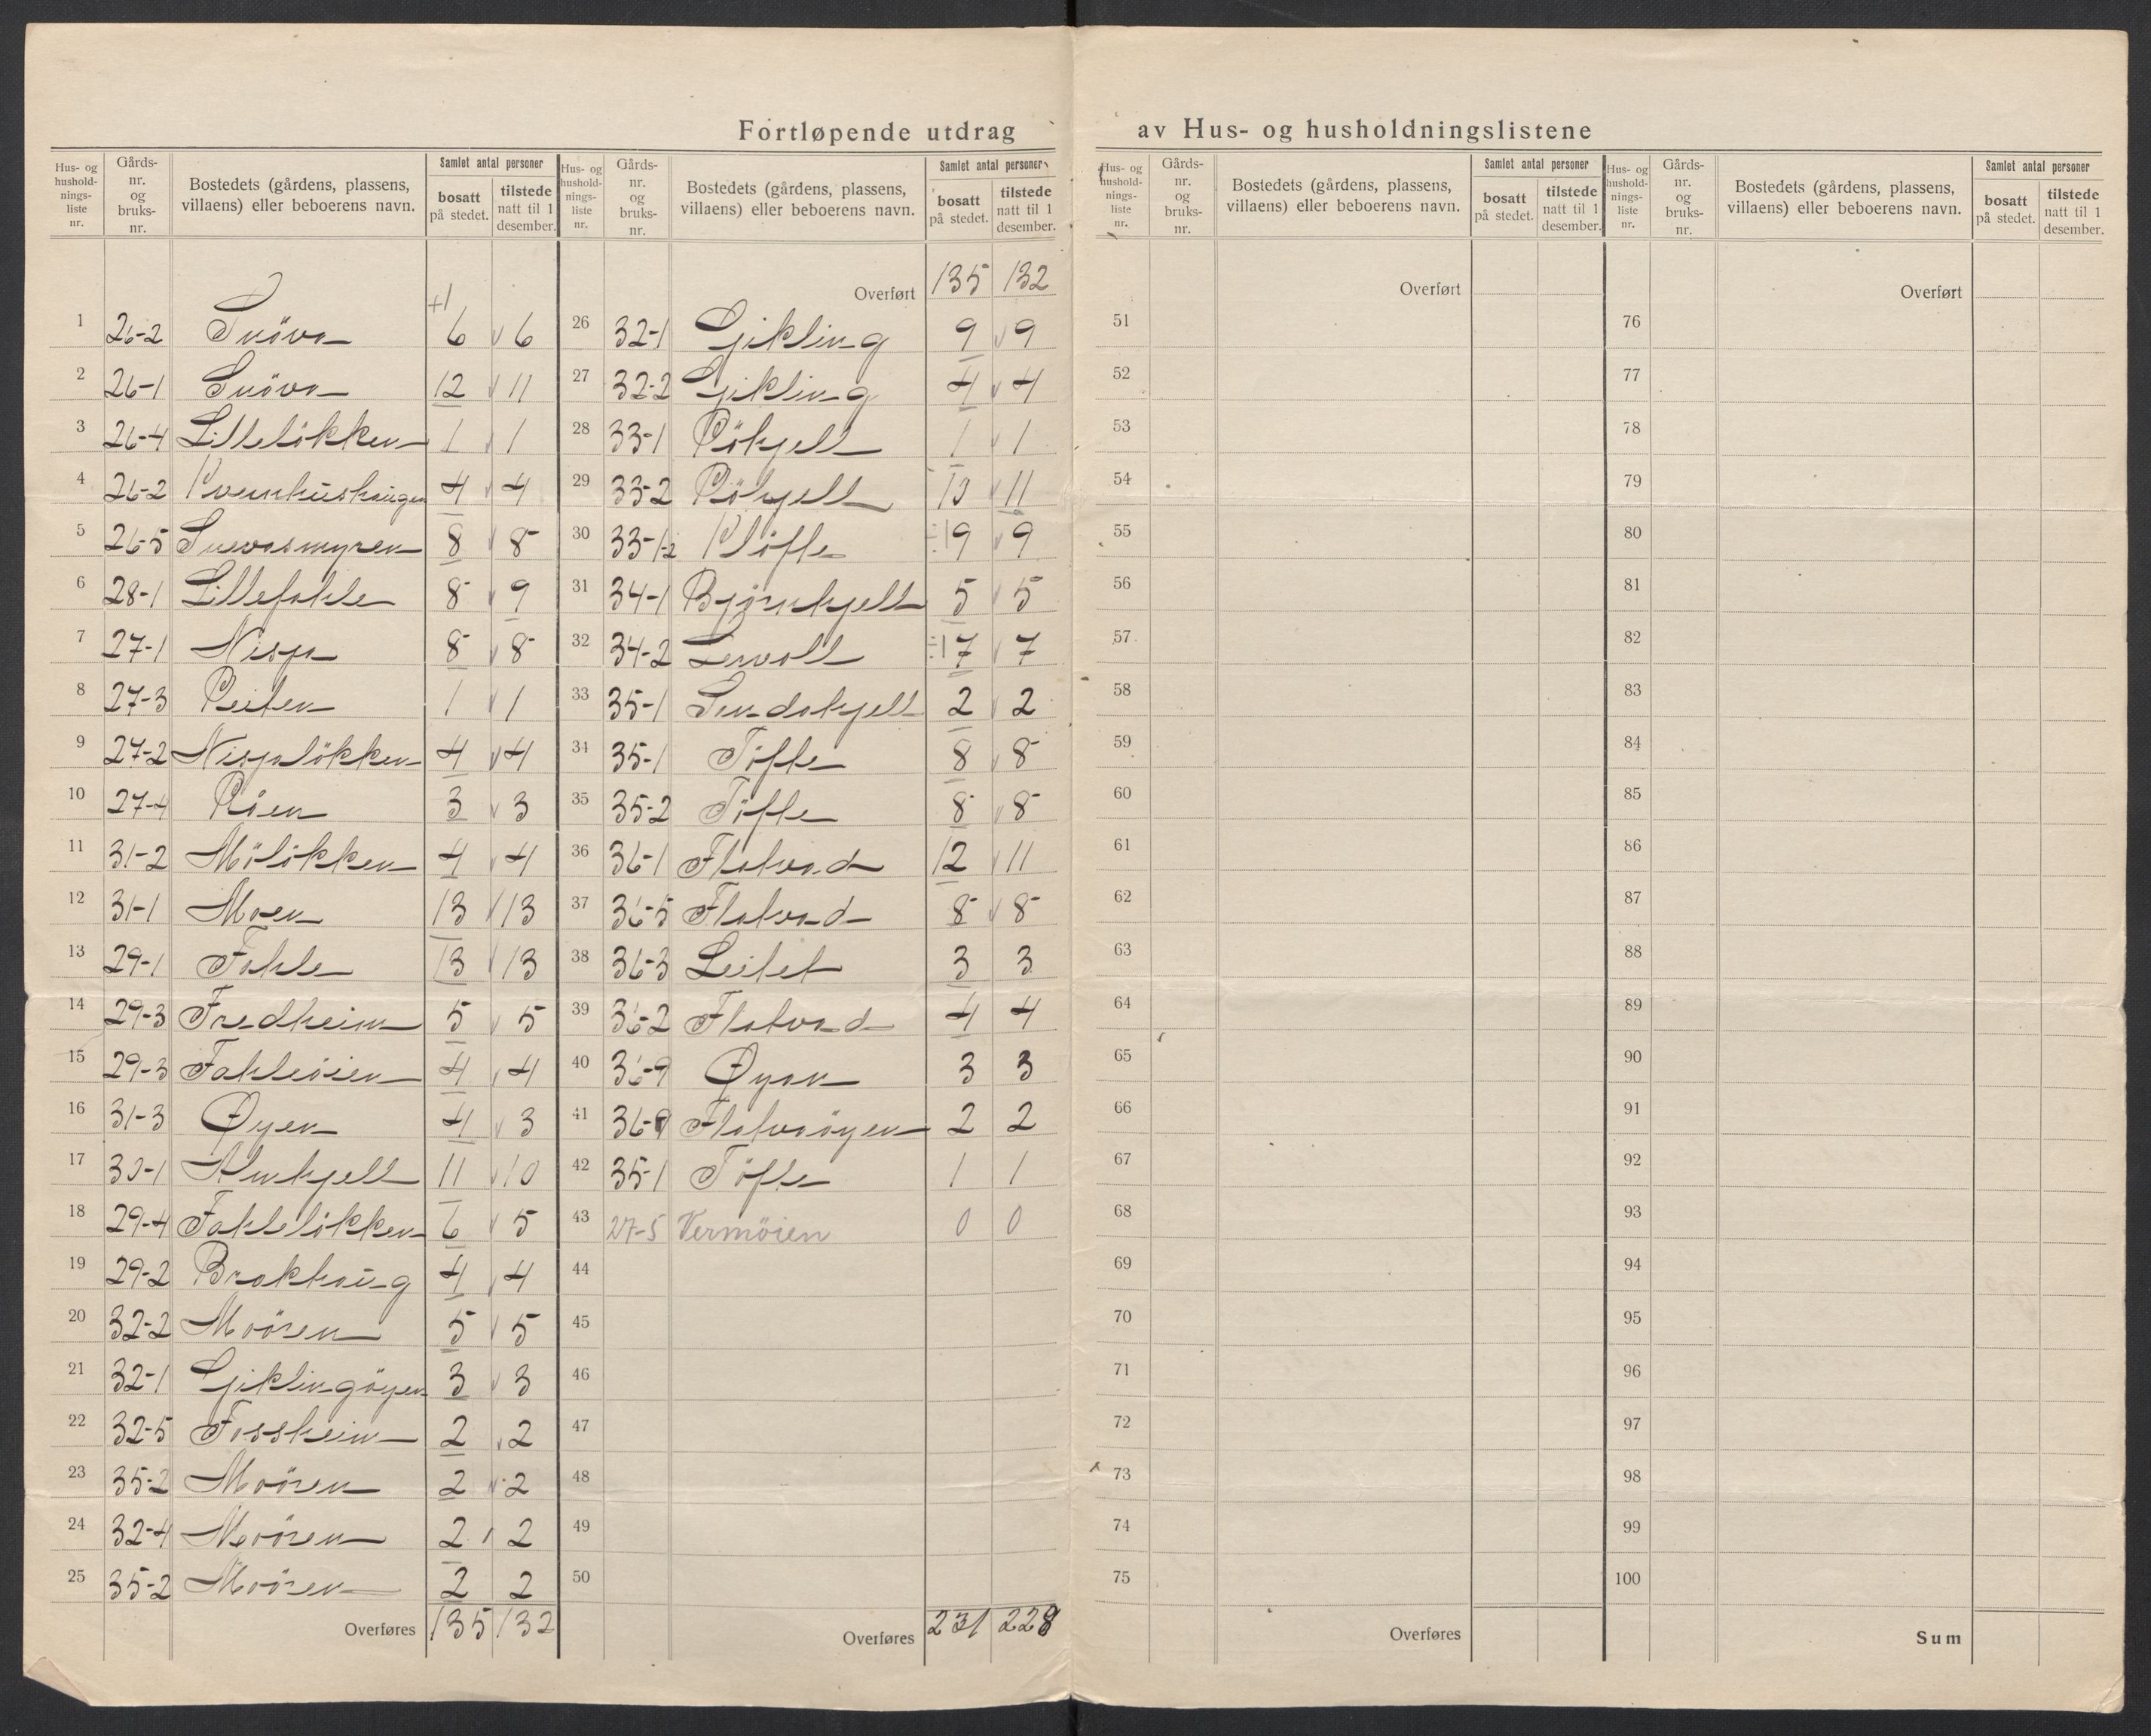 Fortløpende utdrag av Hus- og husholdningslistene
Hus- og hushold-nings-liste nr. | Gårds-nr. og bruks-nr. | Bostedets (gårdens, plassens, villaens) eller beboerens navn. | Samlet antal personer | bosatt på stedet. | tilstede natt til 1 desember.
+1
1 26-2 Snöva 6 v 6
2 26-1 Snöva 12 v 11
3 26-4 Lillelökken 1 v 1
4 26-2 Kvernhushaugen 4 v 4
5 26-5 Snevasmyren 8 v 8
6 28-1 Lillefahle 8 v 9
7 27-1 Nisja 8 v 8
8 27-3 Reiten 1 v 1
9 27-2 Nisjalökken 4 v 4
10 27-4 Röen 3 v 3
11 31-2 Mölökken 4 v 4
12 31-1 Moen 13 v 13
13 29-1 Fahle 13 v 13
14 29-3 Fredheim 5 v 5
15 29-3 Fahleöien 4 v 4
16 31-3 Øyen 4 v 3
17 30-1 Almkjell 11 v 10
18 29-4 Fahlelökken 6 v 5
19 29-2 Brakhaug 4 v 4
20 32-2 Moören 5 v 5
21 32-1 Gjiklingöyen 3 v 3
22 32-5 Fossheim 2 v 2
23 35-2 Moören 2 v 2
24 32-4 Moören 2 v 2
25 35-2 Moören 2 2
Overføres 135 132
Hus- og hushold-nings-liste nr. | Gårds-nr. og bruks-nr. | Bostedets (gårdens, plassens, villaens) eller beboerens navn. | Samlet antal personer | bosatt på stedet. | tilstede natt til 1 desember.
Overført 135 132
26 32-1 Gjikling 9 v 9
27 32-2 Gjikling 4 v 4
28 33-1 Rökjell 1 v 1
29 33-2 Rökjell 10 v 11
30 33-1-2 Klöfte ÷1 9 v 9
31 34-1 Bjørnkjell 5 v 5
32 34-2 Lervoll ÷1 7 v 7
33 35-1 Sindakjell 2 v 2
34 35-1 Töfte 8 v 8
35 35-2 Töfte 8 v 8
36 36-1 Flatvad 12 v 11
37 36-5 Flatvad 8 v 8
38 36-3 Leitet 3 3
39 36-2 Flatvad 4 4
40 36-9 Øyan 3 3
41 36-9 Flatvaöyen 2 2
42 35-1 Töfte 1 1
43 27-5 Vermöien 0 0
44
45
46
47
48
49
50
Overføres 231 228
Hus- og hushold-nings-liste nr. | Gårds-nr. og bruks-nr. | Bostedets (gårdens, plassens, villaens) eller beboerens navn. | Samlet antal personer | bosatt på stedet. | tilstede natt til 1 desember.
Overført
51
52
53
54
55
56
57
58
59
60
61
62
63
64
65
66
67
68
69
70
71
72
73
74
75
Overføres
Hus- og hushold-nings-liste nr. | Gårds-nr. og bruks-nr. | Bostedets (gårdens, plassens, villaens) eller beboerens navn. | Samlet antal personer | bosatt på stedet. | tilstede natt til 1 desember.
Overført
76
77
78
79
80
81
82
83
84
85
86
87
88
89
90
91
92
93
94
95
96
97
98
99
100
Sum